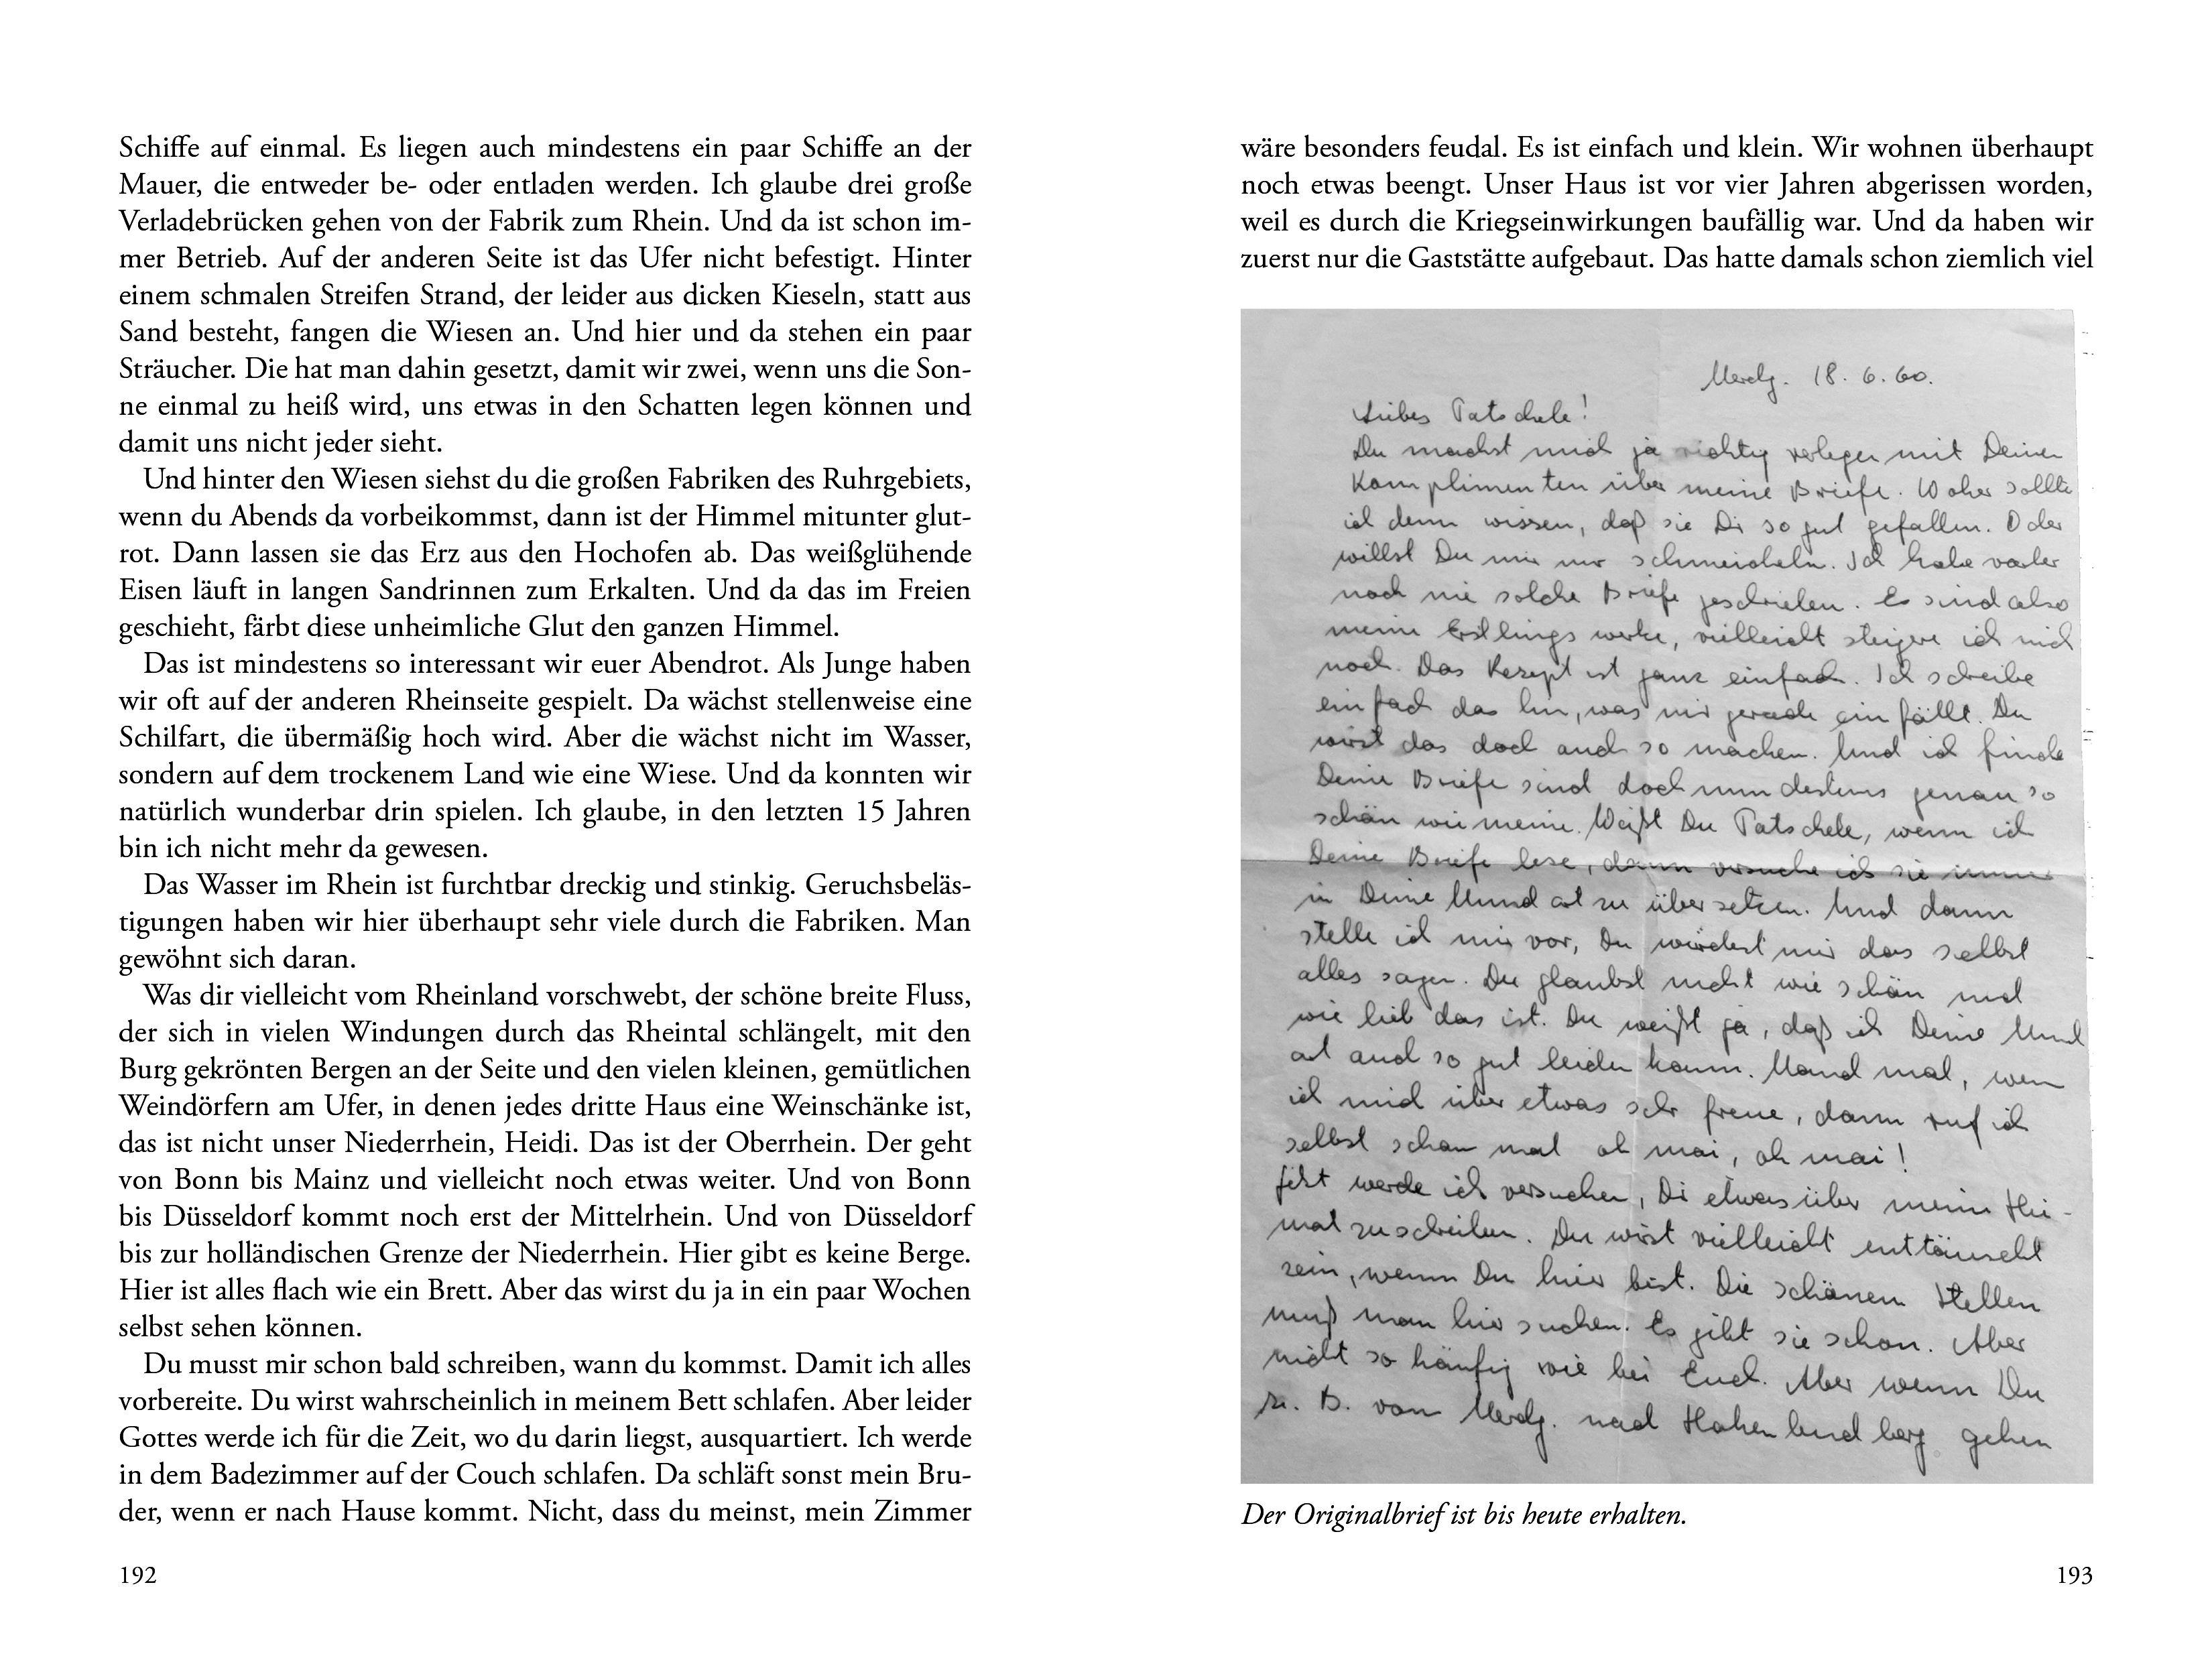 Schiffe auf einmal. Es liegen auch mindestens ein paar Schiffe an der
Mauer, die entweder be- oder entladen werden. Ich glaube drei große
Verladebrücken gehen von der Fabrik zum Rhein. Und da ist schon im-
mer Betrieb. Auf der anderen Seite ist das Ufer nicht befestigt. Hinter
einem schmalen Streifen Strand, der leider aus dicken Kieseln, statt aus
Sand besteht, fangen die Wiesen an. Und hier und da stehen ein paar
Sträucher. Die hat man dahin gesetzt, damit wir zwei, wenn uns die Son-
ne einmal zu heiß wird, uns etwas in den Schatten legen können und
damit uns nicht jeder sieht.
Und hinter den Wiesen siehst du die großen Fabriken des Ruhrgebiets,
wenn du Abends da vorbeikommst, dann ist der Himmel mitunter glut-
rot. Dann lassen sie das Erz aus den Hochofen ab. Das weißglühende
Eisen läuft in langen Sandrinnen zum Erkalten. Und da das im Freien
geschieht, färbt diese unheimliche Glut den ganzen Himmel.
Das ist mindestens so interessant wir euer Abendrot. Als Junge haben
wir oft auf der anderen Rheinseite gespielt. Da wächst stellenweise eine
Schilfart, die übermäßig hoch wird. Aber die wächst nicht im Wasser,
sondern auf dem trockenem Land wie eine Wiese. Und da konnten wir
natürlich wunderbar drin spielen. Ich glaube, in den letzten 15 Jahren
bin ich nicht mehr da gewesen.
Das Wasser im Rhein ist furchtbar dreckig und stinkig. Geruchsbeläs-
tigungen haben wir hier überhaupt sehr viele durch die Fabriken. Man
gewöhnt sich daran.
Was dir vielleicht vom Rheinland vorschwebt, der schöne breite Fluss,
der sich in vielen Windungen durch das Rheintal schlängelt, mit den
Burg gekrönten Bergen an der Seite und den vielen kleinen, gemütlichen
Weindörfern am Ufer, in denen jedes dritte Haus eine Weinschänke ist,
das ist nicht unser Niederrhein, Heidi. Das ist der Oberrhein. Der geht
von Bonn bis Mainz und vielleicht noch etwas weiter. Und von Bonn
bis Düsseldorf kommt noch erst der Mittelrhein. Und von Düsseldorf
bis zur holländischen Grenze der Niederrhein. Hier gibt es keine Berge.
Hier ist alles flach wie ein Brett. Aber das wirst du ja in ein paar Wochen
selbst sehen können.
Du musst mir schon bald schreiben, wann du kommst. Damit ich alles
vorbereite. Du wirst wahrscheinlich in meinem Bett schlafen. Aber leider
Gottes werde ich für die Zeit, wo du darin liegst, ausquartiert. Ich werde
in dem Badezimmer auf der Couch schlafen. Da schläft sonst mein Bru-
der, wenn er nach Hause kommt. Nicht, dass du meinst, mein Zimmer
192
wäre besonders feudal. Es ist einfach und klein. Wir wohnen überhaupt
noch etwas beengt. Unser Haus ist vor vier Jahren abgerissen worden,
weil es durch die Kriegseinwirkungen baufällig war. Und da haben wir
zuerst nur die Gaststätte aufgebaut. Das hatte damals schon ziemlich viel
18. 6. 60.
Liebes Tatschele!
Du machst mich ja richtig verlegen mit Deinen
Komplimenten über meine Briefe. Woher sollte
ich denn wissen, daß sie Dir so gut gefallen. Oder
willst Du mir nur schmeicheln. Ich habe vorher
noch nie solche Briefe geschrieben. Es sind also
meine Erstlingswerke, vielleicht steigere ich mich
noch. Das Rezept ist ganz einfach. Ich schreibe
einfach das hin, was mir gerade einfällt. Du
wirst das doch auch so machen. Und ich finde
Deine Briefe sind doch mindestens genau so
schön wie meine. Weißt Du Tatschele, wenn ich
Deine Briefe lese, dann versuche ich sie immer
in Deine Mundart zu übersetzen. Und dann
stelle ich mir vor, Du würdest mir das selbst
alles sagen. Du glaubst nicht wie schön und
wie lieb das ist. Du weißt ja, daß ich Deine Mund
art auch so gut leiden kann. Manchmal, wenn
ich mich über etwas sehr freue, dann ruf ich
selbst schon mal oh mai, oh mai!
Jetzt werde ich versuchen, Dir etwas über meine Hei-
mat zu schreiben. Du wirst vielleicht enttäuscht
sein, wenn Du hier bist. Die schönen Stellen
muß man hier suchen. Es gibt sie schon. Aber
nicht so häufig wie bei Euch. Aber wenn Du
z. B. von nach Hohenbudberg gehen
Der Originalbrief ist bis heute erhalten.
193